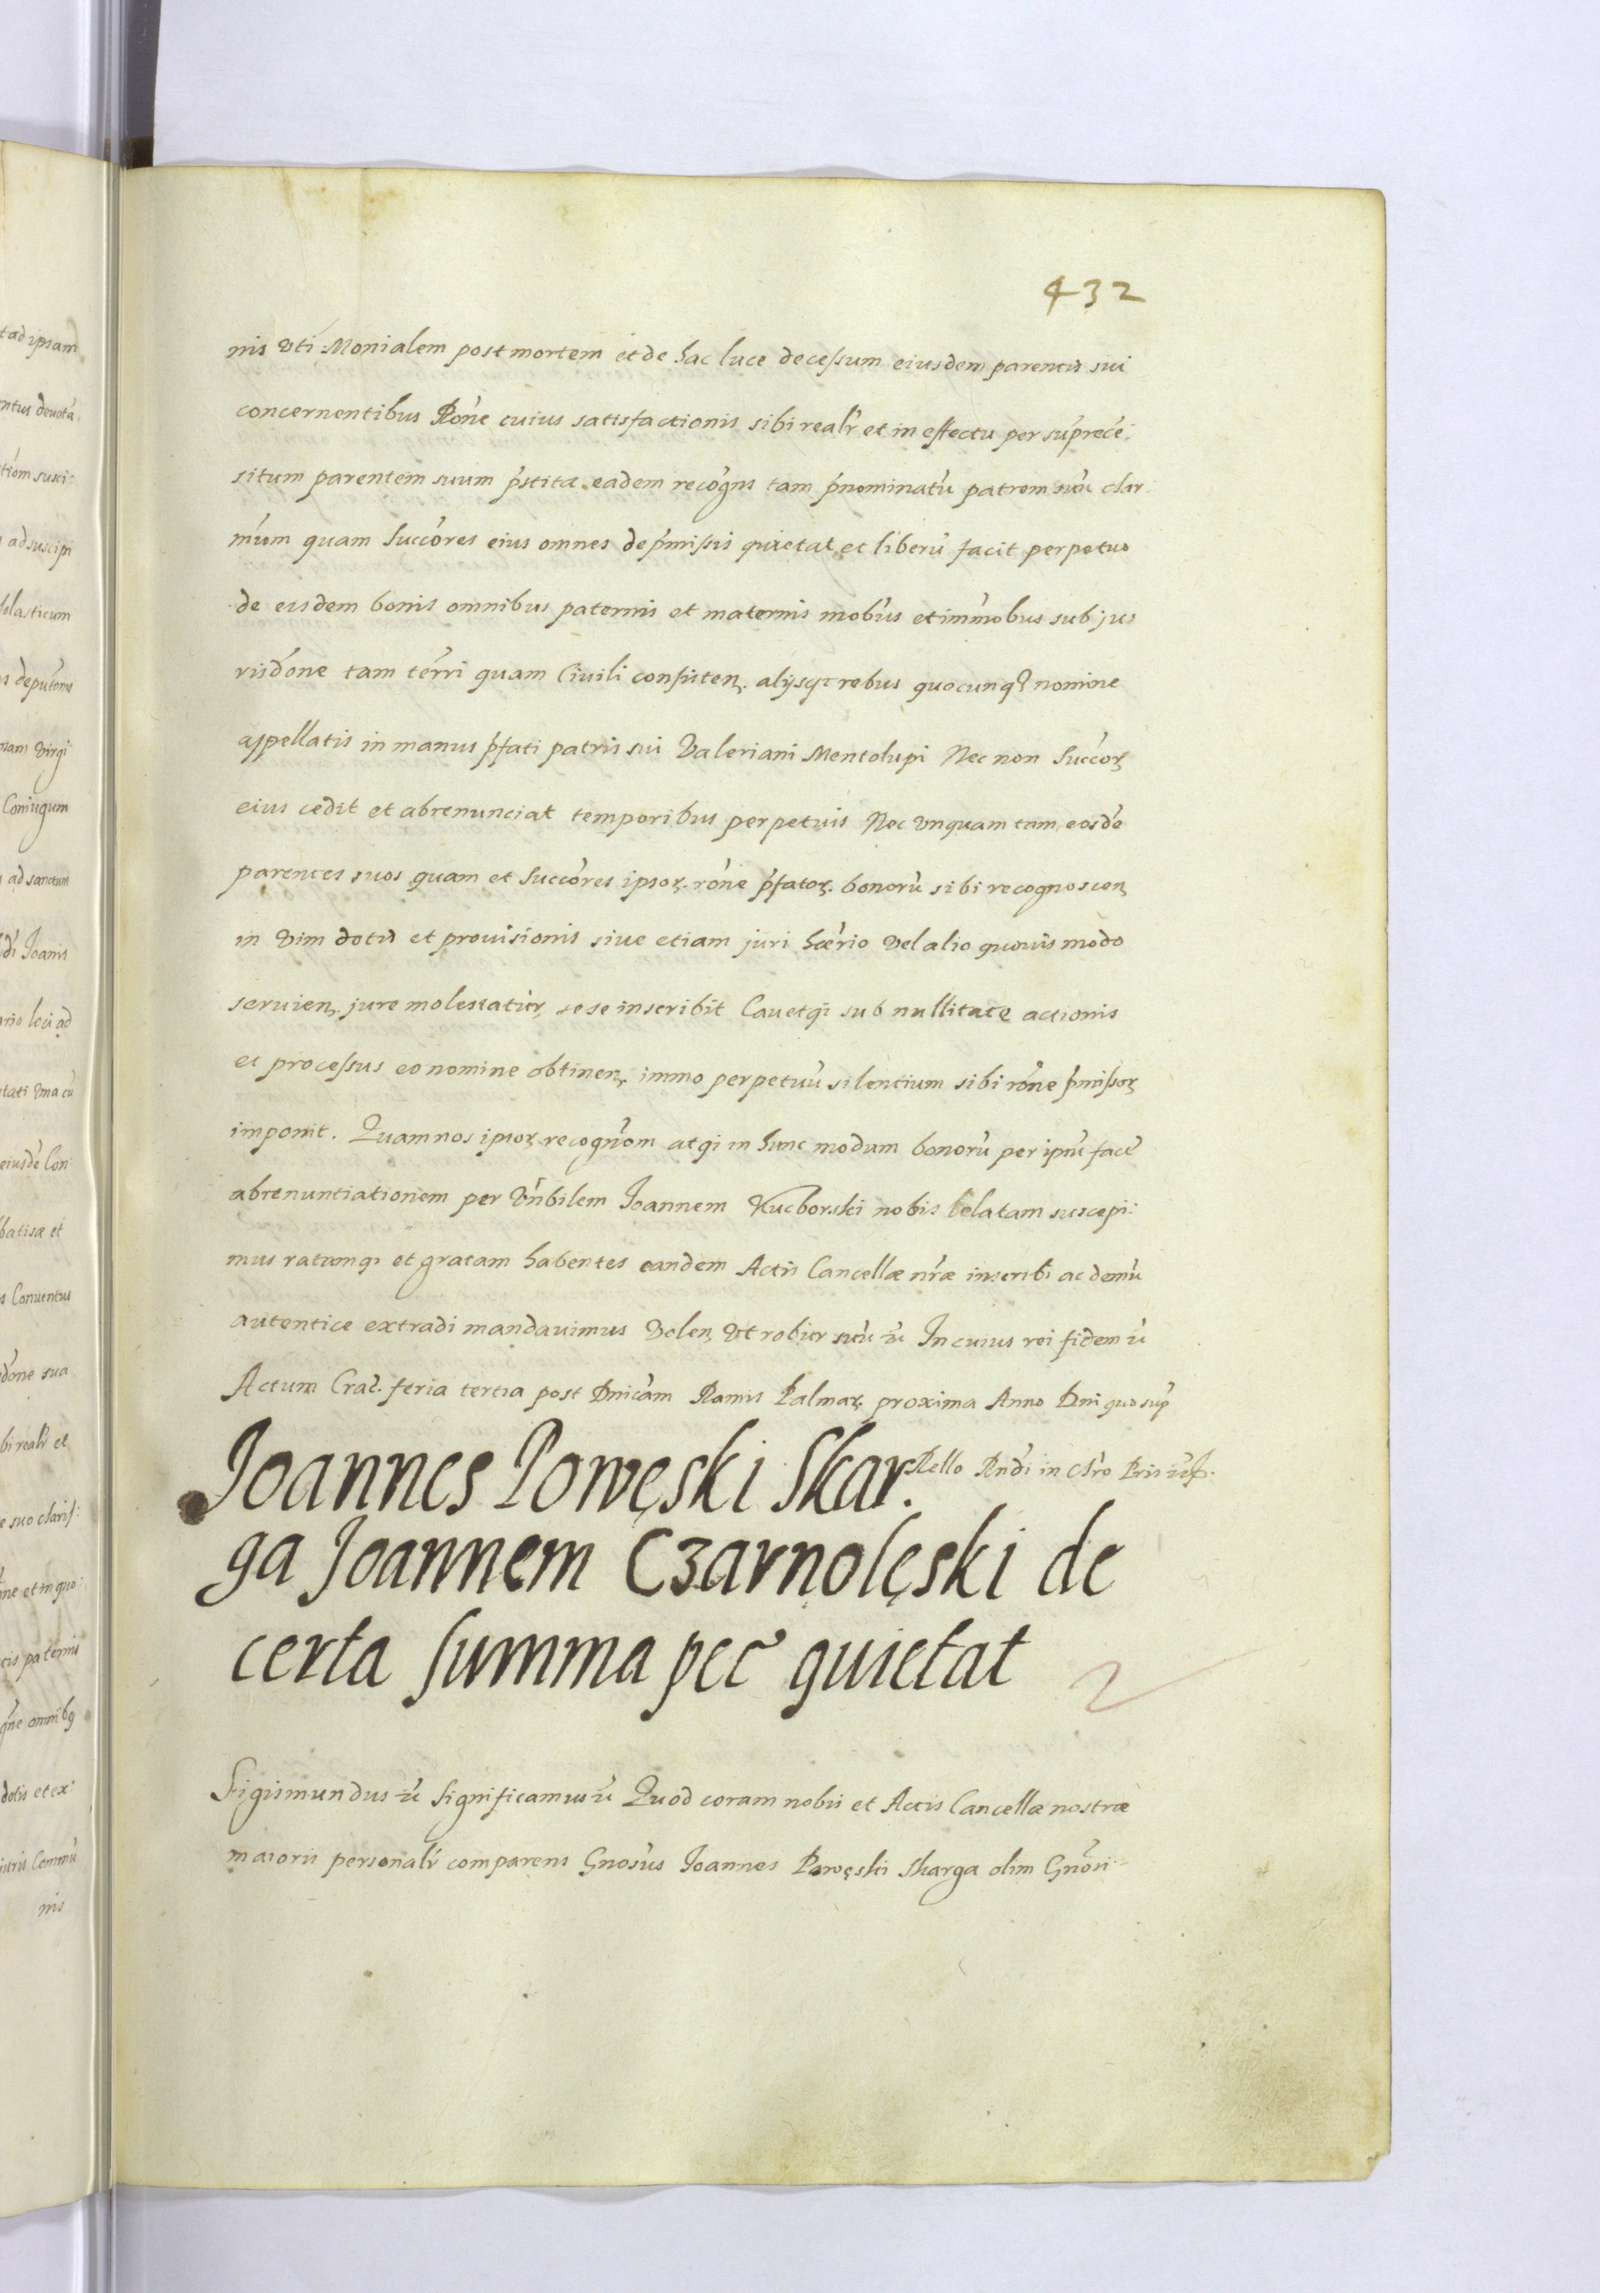 432
nis uti Monialem post mortem et de hac luce decessum eiusdem parentis sui
concernentibus Rone cuius satisfactionis sibi realr et in effectu per suprece:
situm parentem suum pstita eadem recogns tam pnominatu patrem suu clar
mum quam Succores eius omnes de pmissis quietat et liberu facit perpetuo
de eisdem bonis omnibus paternis et maternis mobus et immobus sub ju:
risdone tam terri quam Ciuili consisten. alijsqz rebus quocunqz nomine
appellatis in manus pfati patris sui Valeriani Mentolupi Nec non Succor
eius cedit et abrenunciat temporibus perpetuis Nec unquam tam eosde
parentes suos quam et Succores ipsor. rone pfator. bonoru sibi recognoscen
in vim dotis et prouisionis siue etiam juri haerio vel alio quouis modo
seruien. jure molestatur sese inscribit Cauetqz sub nullitate actionis
et processus eo nomine obtinen. immo perpetuu silentium sibi rone pmissor
imponit. Quam nos ipsor recognom atqz in hunc modum bonoru per ipsu face
abrenuntiationem per Vnbilem Joannem Kucborski nobis delatam suscepi:
mus ratamqz et gratam habentes eandem Actis Cancellae nrae inscribi ac demu
autentice extradi mandauimus Volen. Vt robur suu zc In cuius rei fidem zc
Actum Crac. feria tertia post Dnicam Ramis Palmar. proxima Anno Dni quo sup
Rello Rndi in Chro Pris
Joannes Powęski Skar.
ga Joannem Czarnolęski de
certa summa pec quietat
Sigismundus zc Significamus zc Quod coram nobis et Actis Cancellae nostrae
maioris personalr comparens Gnosus Joannes Powęski Skarga olim Gnosi